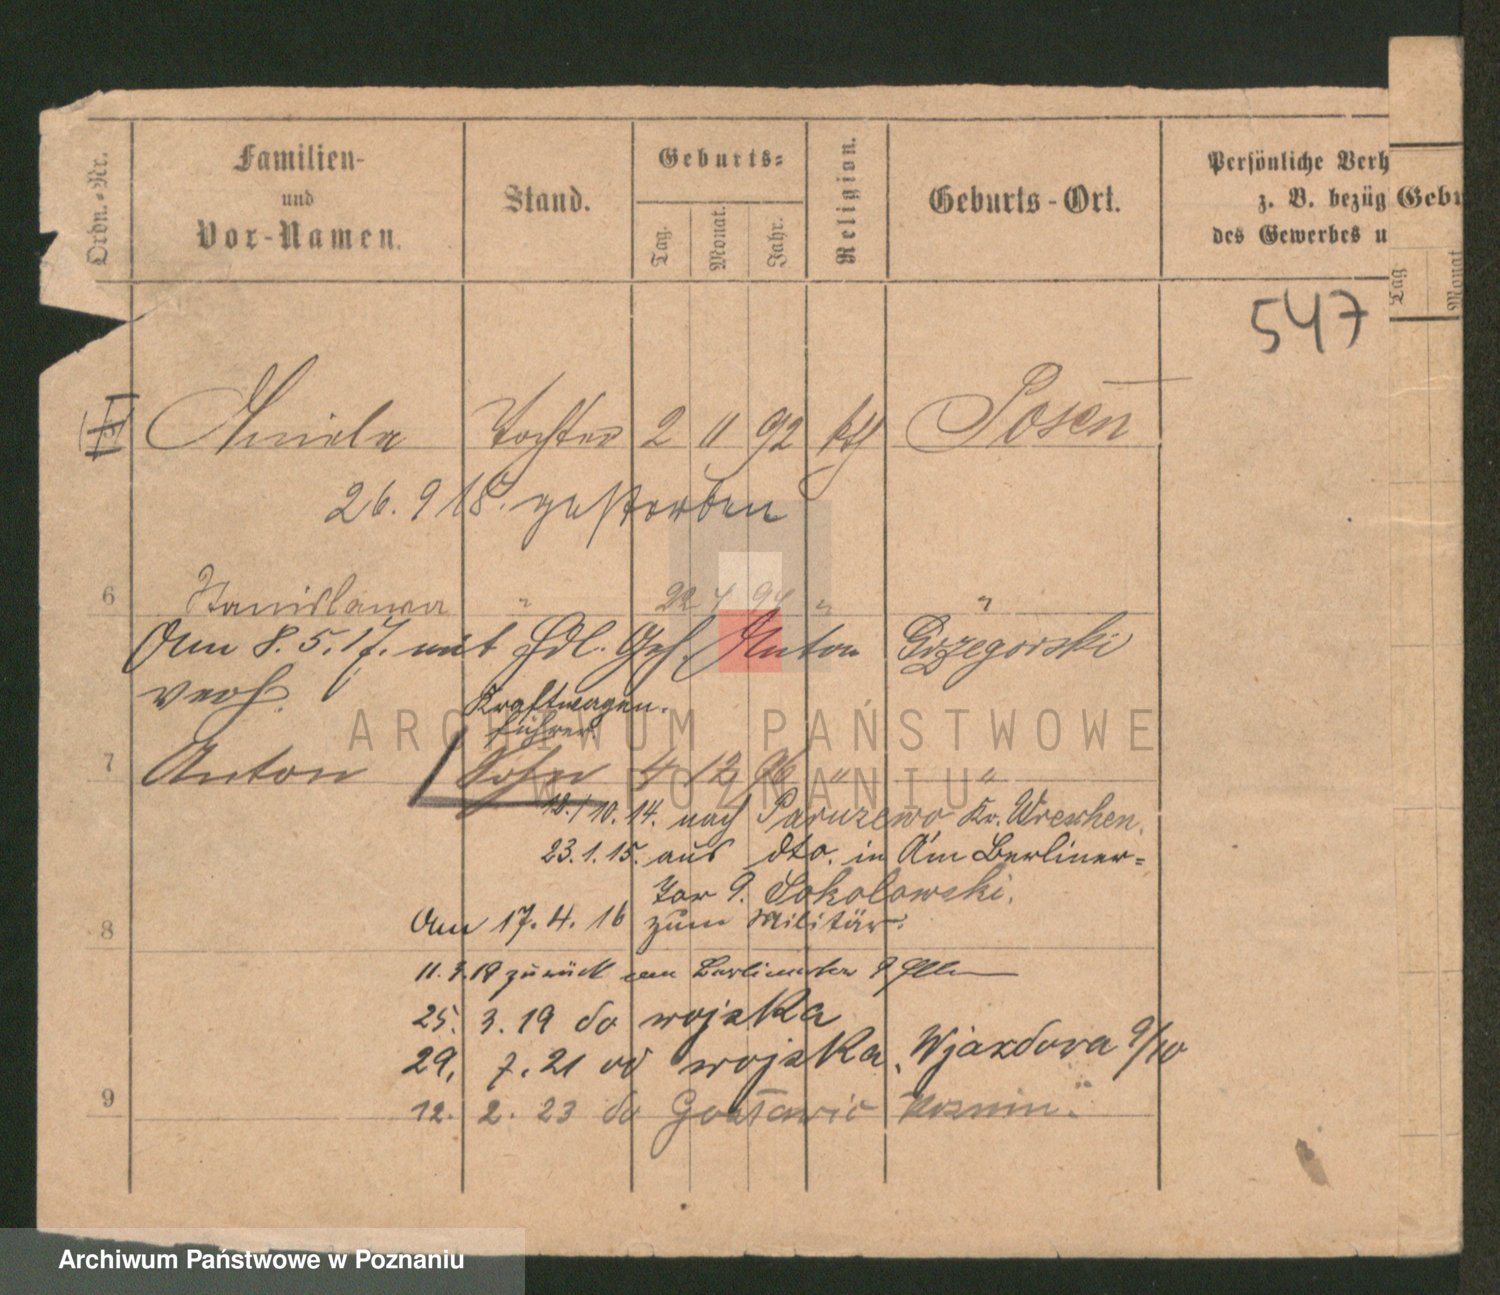 Ordn.-Nr.
Familien-
und
Vor-Namen.
Stand.
Geburts-
Tag.
Monat.
Jahr.
Religion.
Geburts-Ort.
Persönliche Verh
z. B. bezüg
des Gewerbes u
Gebu
Tag
Monat
547
Aniela Tochter 2 11 92 kth Posen
26. 9 18. gestorben
6 Stanislawa " 22 4 94 " "
Am 8. 5. 17. mit Hdl. Geh. Anton Grzegorski
verh.
Kraftwagen-
führer
7 Anton Sohn 4 12 96 " "
12./10. 14. nach Paruzewo Kr. Wreschen.
23. 1. 15. aus dto. in Am Berliner-
Tor 9. Sokolowski.
8 Am 17. 4. 16 zum Militär.
11. 3. 19 zurück am Berlinertor 9
25. 3. 19 do wojska
29. 7. 21 od wojska, Wjazdowa 9/10
9 12. 2. 23 do
ARCHIWUM PAŃSTWOWE
W POZNANIU
Archiwum Państwowe w Poznaniu